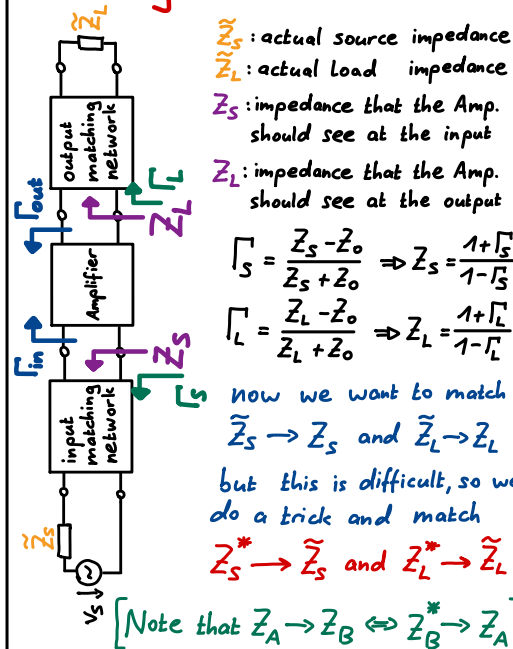 Z̃_L
output
matching
network
Γ_L
Γ_out
Z_L
Amplifier
Γ_in
Z_S
Γ_S
input
matching
network
Z̃_S
~
V_S
Z̃_S : actual source impedance
Z̃_L : actual Load impedance
Z_S : impedance that the Amp.
should see at the input
Z_L : impedance that the Amp.
should see at the output
Γ_S = (Z_S - Z_0)/(Z_S + Z_0) ⇒ Z_S = (1+Γ_S)/(1-Γ_S)
Γ_L = (Z_L - Z_0)/(Z_L + Z_0) ⇒ Z_L = (1+Γ_L)/(1-Γ_L)
now we want to match
Z̃_S → Z_S and Z̃_L → Z_L
but this is difficult, so
do a trick and match
Z_S* → Z̃_S and Z_L* → Z̃_L
[Note that Z_A → Z_B ⇔ Z_B* → Z_A